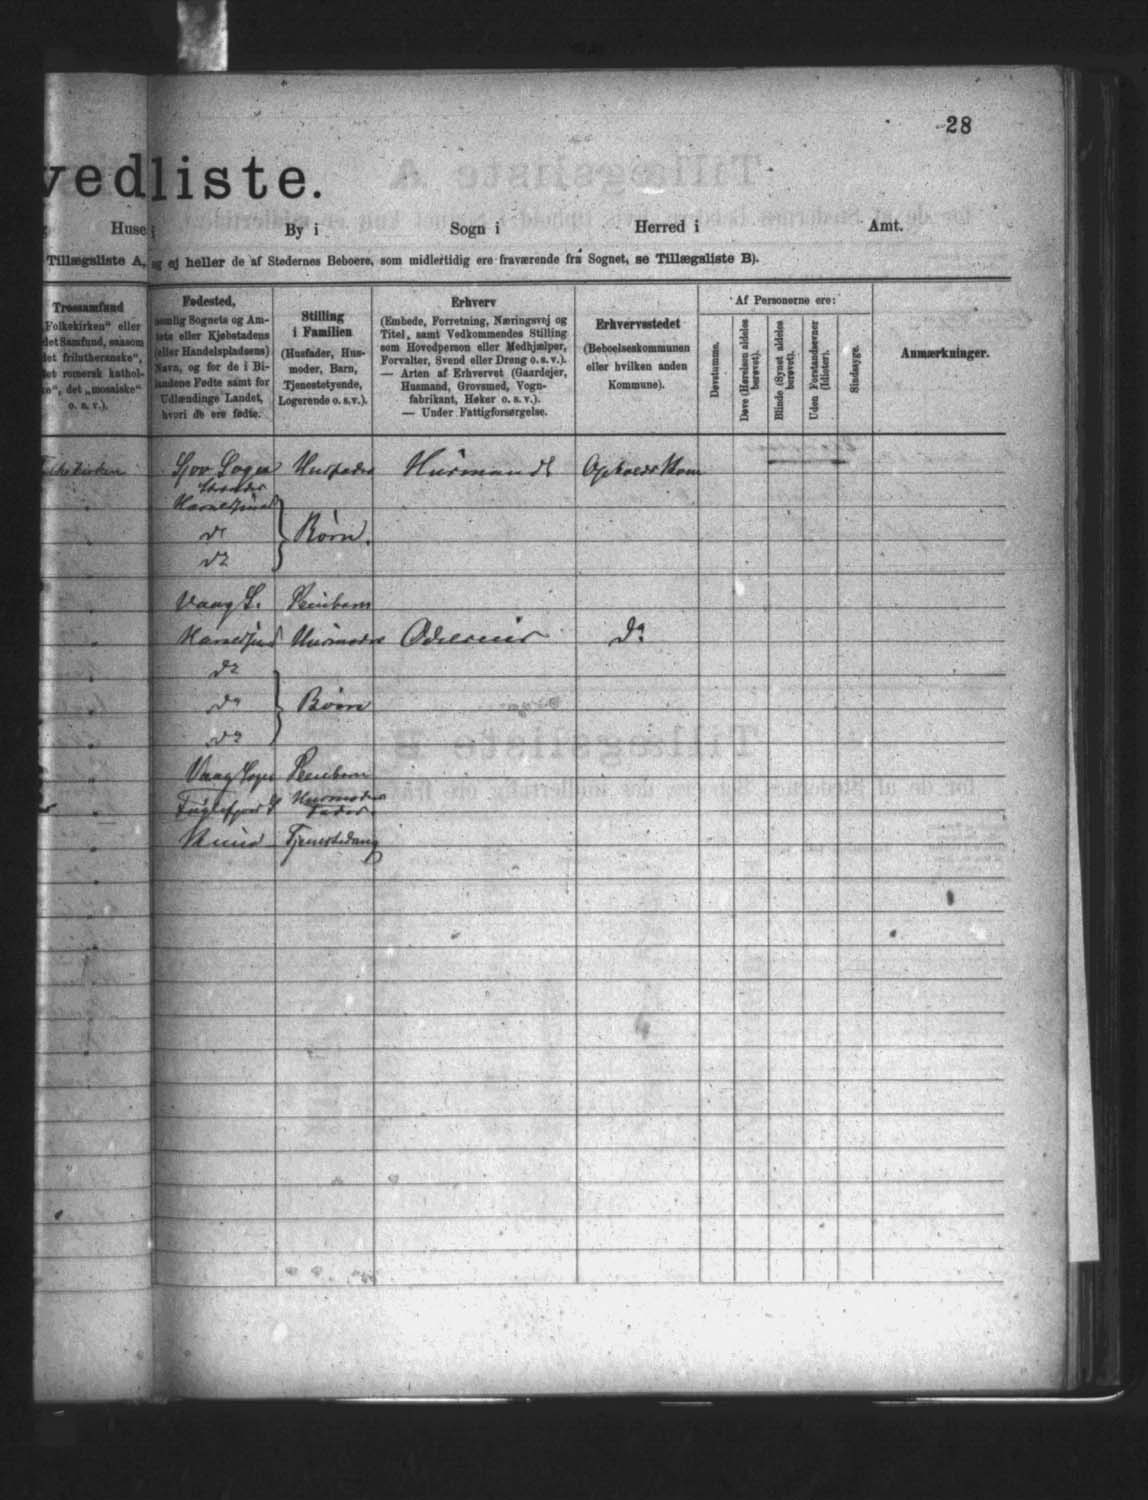 28
vedliste.
Huse i By i Sogn i Herred i Amt.
Tillægsliste A, og ej heller de af Stedernes Beboere, som midlertidig ere fraværende fra Sognet, se Tillægsliste B).
Trossamfund
„Folkekirken“ eller
det Samfund, saasom
det frilutheranske“,
det romersk kathol-
ke“, det „mosaiske“
o. s. v.).
Fødested,
nemlig Sognets og Am-
tets eller Kjøbstadens
(eller Handelspladsens)
Navn, og for de i Bi-
landene Fødte samt for
Udlændinge Landet,
hvori de ere fødte.
Stilling
i Familien
(Husfader, Hus-
moder, Barn,
Tjenestetyende,
Logerende o. s.v.).
Erhverv
(Embede, Forretning, Næringsvej og
Titel, samt Vedkommendes Stilling
som Hovedperson eller Medhjælper,
Forvalter, Svend eller Dreng o. s. v.).
— Arten af Erhvervet (Gaardejer,
Husmand, Grovsmed, Vogn-
fabrikant, Høker o. s. v.).
— Under Fattigforsørgelse.
Erhvervsstedet
(Beboelseskommunen
eller hvilken anden
Kommune).
Af Personerne ere:
Døvstumme.
Døve (Hørelsen aldeles
berøvet).
Blinde (Synet aldeles
berøvet).
Uden Forstandsevner
(Idioter).
Sindssyge.
Anmærkninger.
Folkekirken Sjov Sogn Husfader
do Børn.
do
Vaag S.
Husmoder do
do
do Børn
do
Vaag Sogn
Fuglefjord S Husmoders
Fader